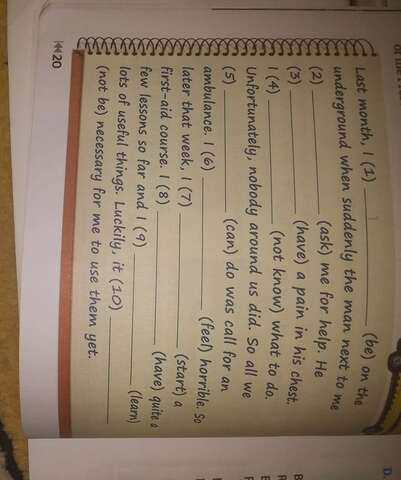 Last month, I (1) __________ (be) on the
underground when suddenly the man next to me
(2) __________ (ask) me for help. He
(3) __________ (have) a pain in his chest.
I (4) __________ (not know) what to do.
Unfortunately, nobody around us did. So all we
(5) __________ (can) do was call for an
ambulance. I (6) __________ (feel) horrible. So
later that week, I (7) __________ (start) a
first-aid course. I (8) __________ (have) quite a
few lessons so far and I (9) __________ (learn)
lots of useful things. Luckily, it (10) __________
(not be) necessary for me to use them yet.
20
D.